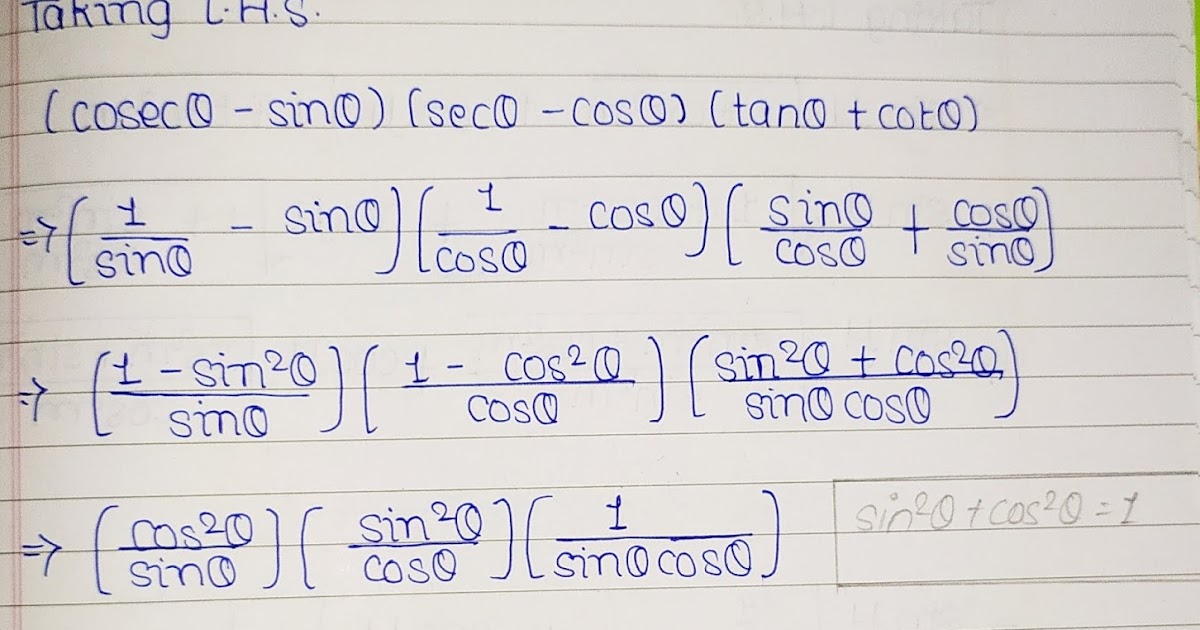 Taking L.H.S.
(cosecθ - sinθ) (secθ - cosθ) (tanθ + cotθ)
⇒ (1/sinθ - sinθ) (1/cosθ - cosθ) (sinθ/cosθ + cosθ/sinθ)
⇒ (1 - sin²θ/sinθ) (1 - cos²θ/cosθ) (sin²θ + cos²θ/sinθ cosθ)
⇒ (cos²θ/sinθ) (sin²θ/cosθ) (1/sinθ cosθ)
sin²θ + cos²θ = 1